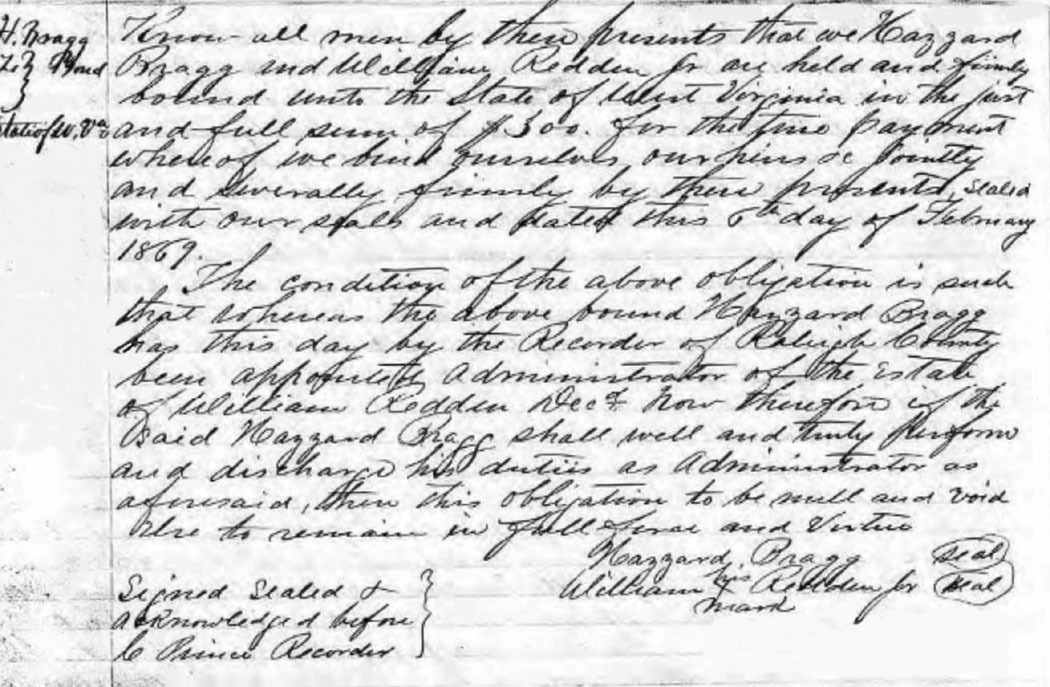 H. Bragg
To } Bond
State of W. Va
Know all men by these presents that we Hazzard
Bragg and William Redden Jr are held and firmly
bound unto the State of West Virginia in the just
and full sum of $300. for the true payment
whereof we bind ourselves, our heirs &c jointly
and severally firmly by these presents, sealed
with our seals and dated this 6th day of February
1869.
The condition of the above obligation is such
that whereas the above bound Hazzard Bragg
has this day by the Recorder of Raleigh County
been appointed Administrator of the Estate
of William Redden Decd. Now therefore if the
said Hazzard Bragg shall well and truly perform
and discharge his duties as Administrator as
aforesaid, then this obligation to be null and void
Else to remain in full force and Virtue
Hazzard Bragg seal
his
William X Redden Jr seal
mark
Signed Sealed &
acknowledged before
C Prince Recorder